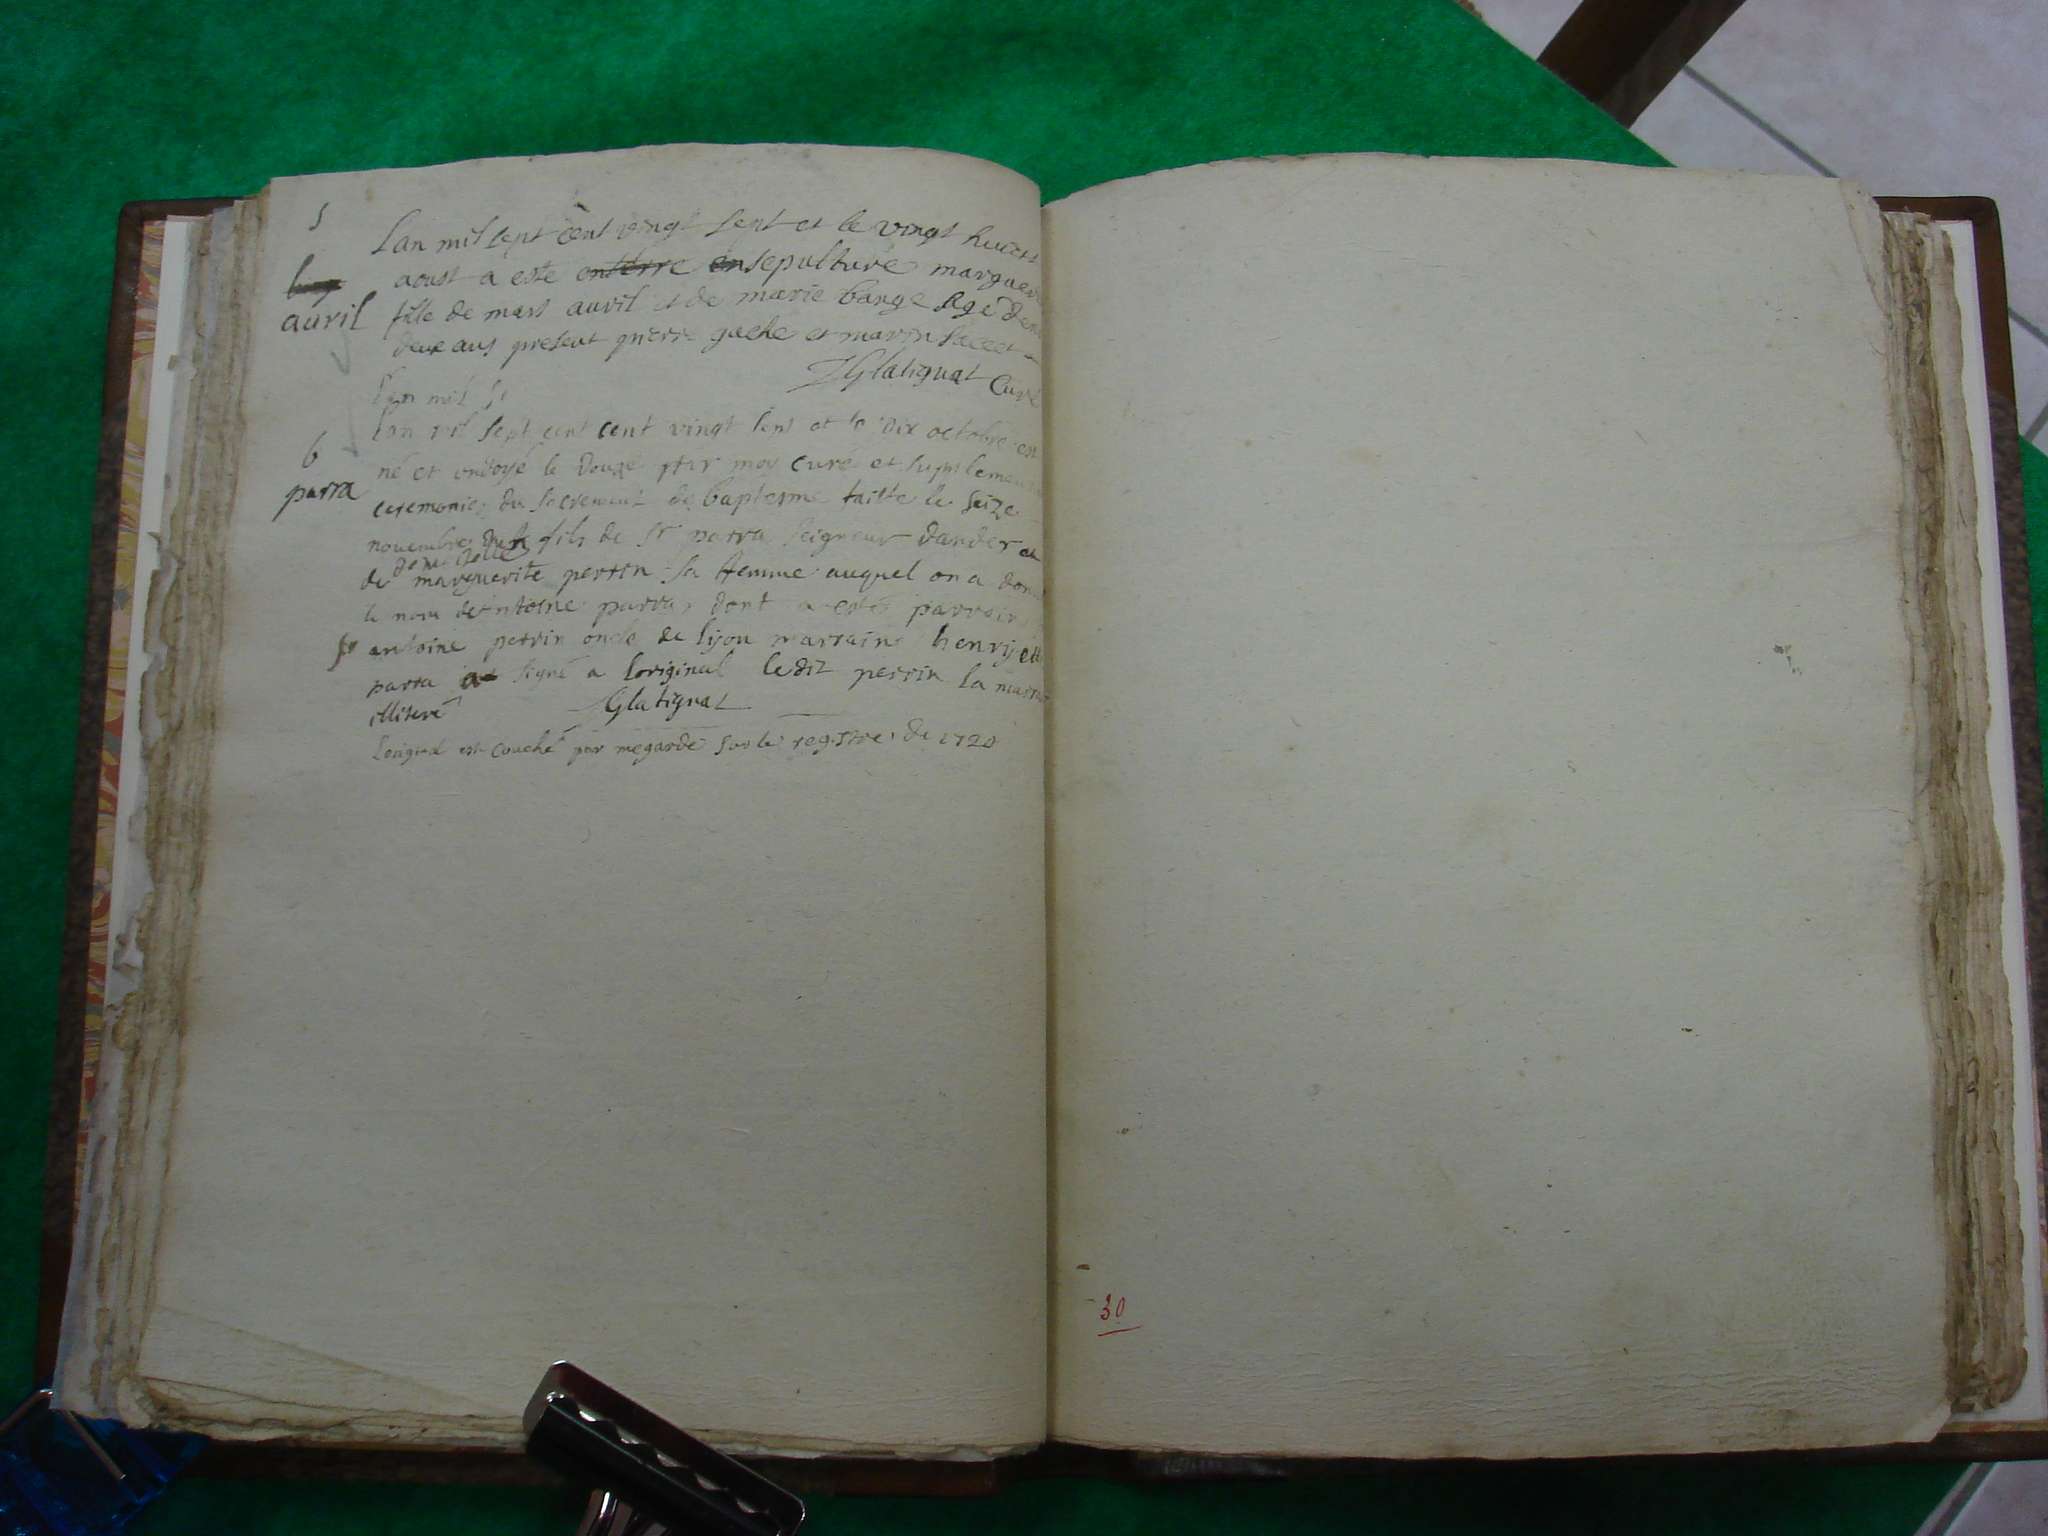 5
Lan mil sept cent vingt sept et le vingt huict
aoust a esté enterré ensepulturé marguer
avril
fille de mars avril et de marie barge agé den
deux ans present pierre gache et marin
Glatignat Curé
Lan mil se
Lan mil sept cent cent vingt sept et le dix octobre est
6
né et ondoyé le douze par moy curé et suplement
parra
ceremonies du sacrement de baptesme faitte le seize
novembre fils de sr parra seigneur dandes et
demoiselle
de marguerite perrin sa femme auquel on a don
le nom dentoine parra dont a esté parrain
sr antoine perrin oncle de lijon marraine henrijett
parra a signé a loriginal ledit perrin la marr
illiteré Glatignat
Loriginal est couché par megarde sur le registre de 1728
30